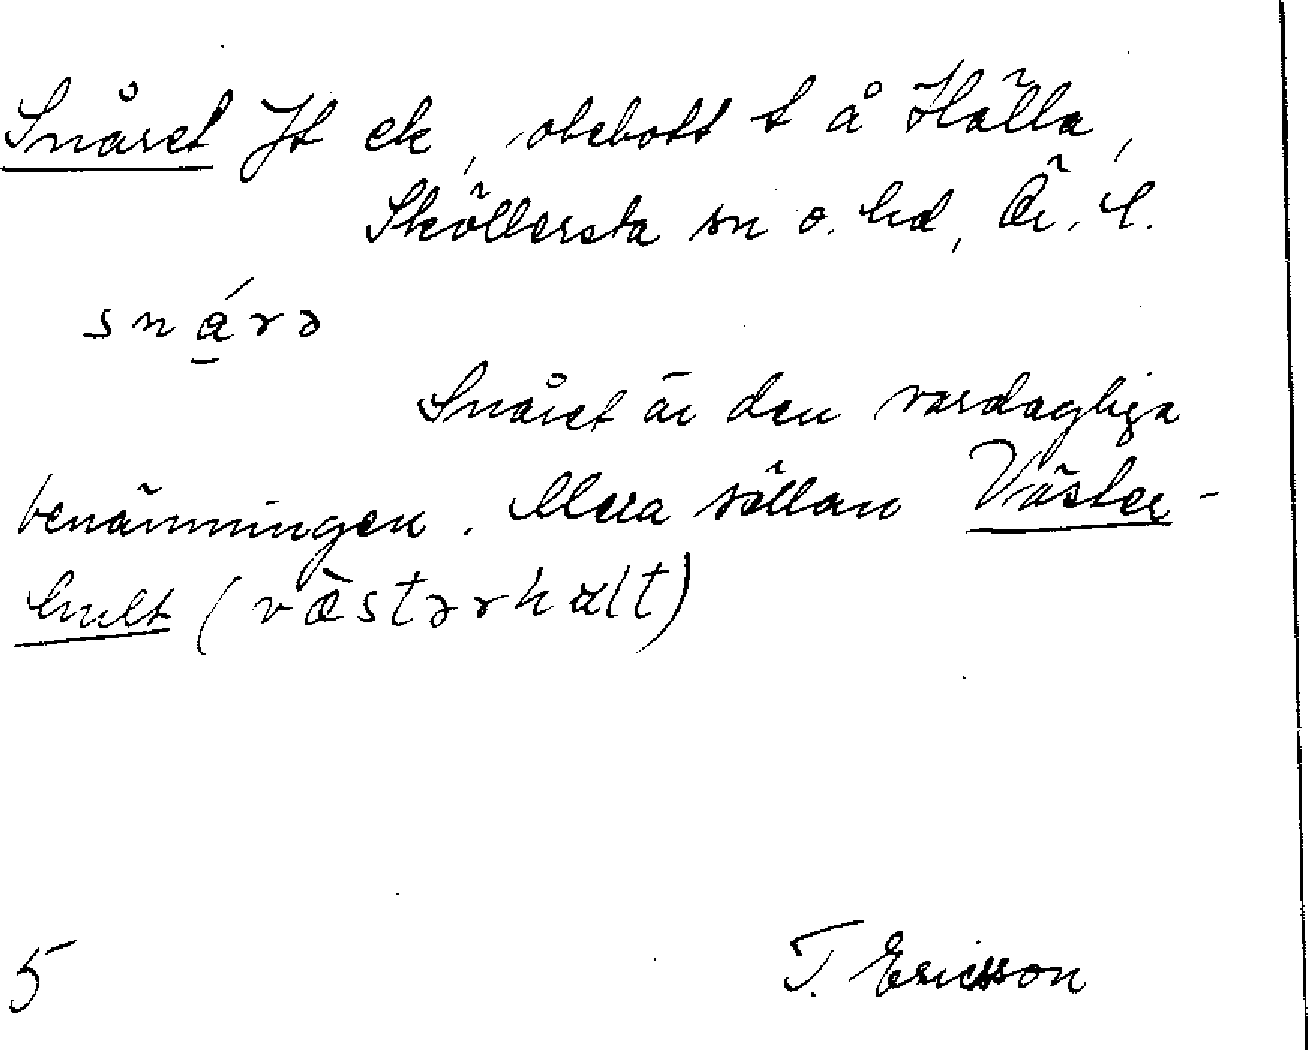 Snåret Jt ek, obebott t å Hälla,
Sköllersta sn o. hd, Ör. l.
snár̀ə
Snåret är den vardagliga
benämningen. Mera sällan Väster-
hult (væ̀stərhɷlt)
5 T. Ericsson